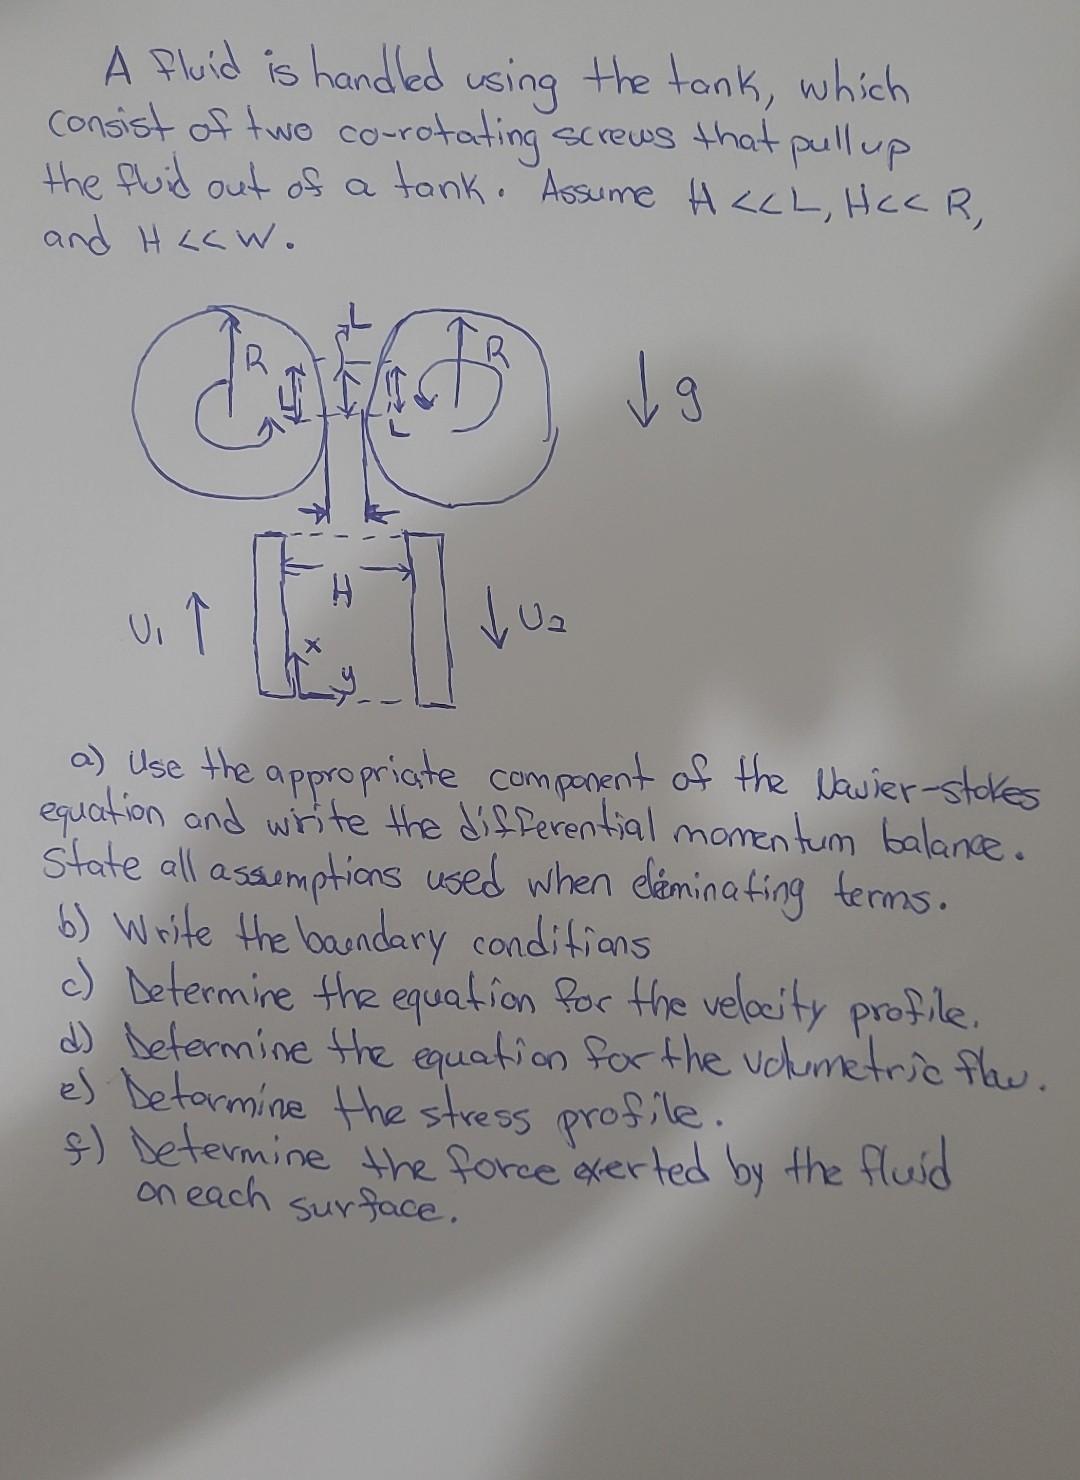 A fluid is handled using the tank, which
consist of two co-rotating screws that pull up
the fluid out of a tank. Assume H <<L, H<< R,
and H << W.
L
R
R
L
L
g
H
U1
U2
x
y
a) Use the appropriate component of the Navier-stokes
equation and write the differential momentum balance.
State all assumptions used when eleminating terms.
b) Write the boundary conditions
c) Determine the equation for the velocity profile.
d) Determine the equation for the volumetric flow.
e) Determine the stress profile.
f) Determine the force exerted by the fluid
on each surface.